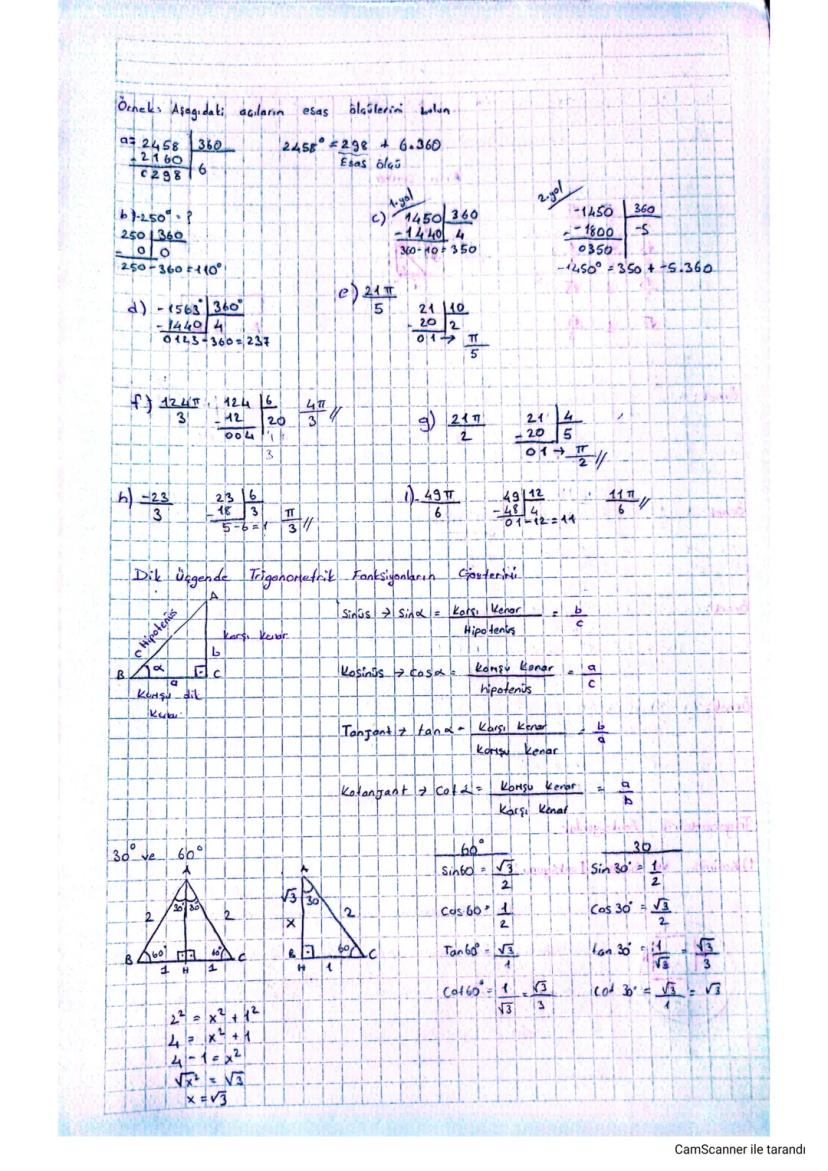 Örnek: Aşağıdaki açıların esas ölçülerini bulun
a= 2458 | 360
-2160 | 6
0298
2458° = 298 + 6.360
Esas ölçü
b) -250° = ?
250 | 360
- 0 | 0
250-360=110°
c) 1.yol
1450 | 360
-1440 | 4
360-10=350
2.yol
-1450 | 360
- -1800 | -5
0350
-1450° = 350 + -5.360
d) -1563° | 360°
-1440 | 4
0123-360=237
e) 21π/5
21 | 10
-20 | 2
01 → π/5
f) 124π/3
124 | 6
-12 | 20
004
3
4π/3 //
g) 21π/2
21 | 4
-20 | 5
01 → π/2 //
h) -23/3
23 | 6
-18 | 3
5-6=1
π/3 //
i) -49π/6
49 | 12
-48 | 4
01-12=11
11π/6 //
Dik Üçgende Trigonometrik Fonksiyonların Gösterimi
A
c Hipotenüs
Karşı Kenar
b
B α C
a
Komşu dik
Kenar
Sinüs → Sinα = Karşı Kenar / Hipotenüs = b/c
Kosinüs → cosα = Komşu Kenar / hipotenüs = a/c
Tanjant → tanα = Karşı Kenar / Komşu Kenar = b/a
Kotanjant → Cotα = Komşu Kenar / Karşı Kenar = a/b
30° ve 60°
A
30° 30
2 2
B 60° 60° C
1 H 1
A
√3 30
x 2
B 60 C
H 1
2² = x² + 1²
4 = x² + 1
4 - 1 = x²
√x² = √3
x = √3
60°
Sin60 = √3/2
Cos60° = 1/2
Tan60° = √3/1
Cot60° = 1/√3 = √3/3
30
Sin 30° = 1/2
Cos 30° = √3/2
tan 30° = 1/√3 = √3/3
Cot 30° = √3/1 = √3
CamScanner ile tarandı